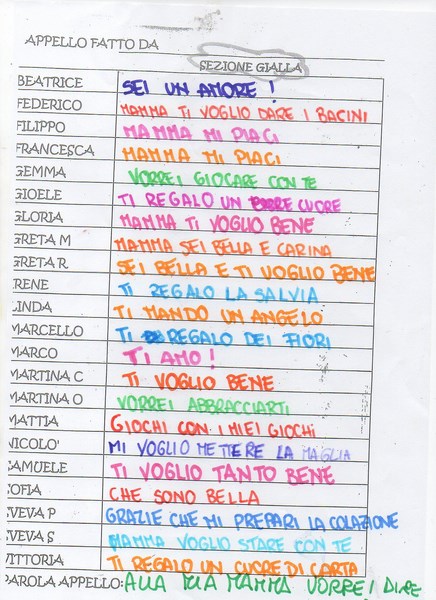 APPELLO FATTO DA
SEZIONE GIALLA
BEATRICE SEI UN AMORE !
FEDERICO MAMMA TI VOGLIO DARE I BACINI
FILIPPO MAMMA MI PIACI
FRANCESCA MAMMA MI PIACI
GEMMA VORREI GIOCARE CON TE
GIOELE TI REGALO UN CUORE
GLORIA MAMMA TI VOGLIO BENE
GRETA M MAMMA SEI BELLA E CARINA
GRETA R SEI BELLA E TI VOGLIO BENE
RENE TI REGALO LA SALVIA
INDA TI MANDO UN ANGELO
MARCELLO TI REGALO DEI FIORI
MARCO TI AMO !
MARTINA C TI VOGLIO BENE
MARTINA O VORREI ABBRACCIARTI
MATTIA GIOCHI CON I MIEI GIOCHI
NICOLO' MI VOGLIO METTERE LA MAGLIA
SAMUELE TI VOGLIO TANTO BENE
SOFIA CHE SONO BELLA
EVEVA P GRAZIE CHE MI PREPARI LA COLAZIONE
EVEVA S MAMMA VOGLIO STARE CON TE
VITTORIA TI REGALO UN CUORE DI CARTA
PAROLA APPELLO: ALLA MIA MAMMA VORREI DIRE